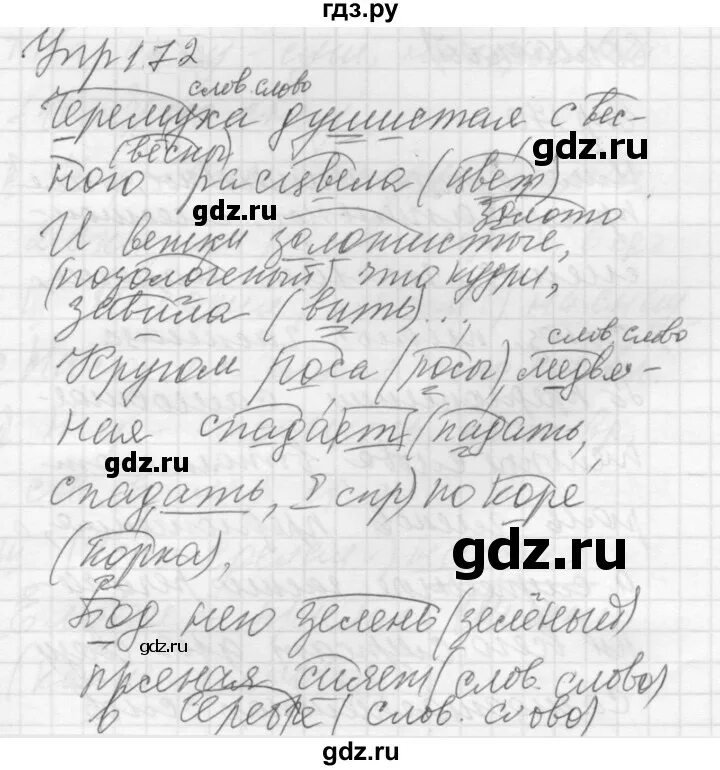 гдз.ру
Упр 172
слов. слово
Черемуха душистая с вес-
(вёсны)
ною расцвела (цвет)
gdz.ru
gdz.ru
золото
И ветки золотистые,
(позолоченый) что кудри,
gdz.ru
завила (вить)...;
слов. слово
Кругом роса (росы) медвя-
ная спадает (падать,
gdz.ru
спадать, I спр) по коре
(корка),
gdz.ru
Под нею зелень (зелёный)
gdz.ru
пряная сияет (слов. слово)
в серебре (слов. слово)
gdz.ru